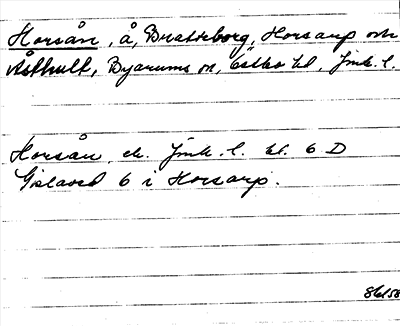 Horsån, å, Bratteborg, Horsarp och
Åsthult, Byarums sn, Östbo hd, Jmk. l.
Horsån, ek. Jmk. l. bl. 6 D
Gislaved 6 i Horsarp.